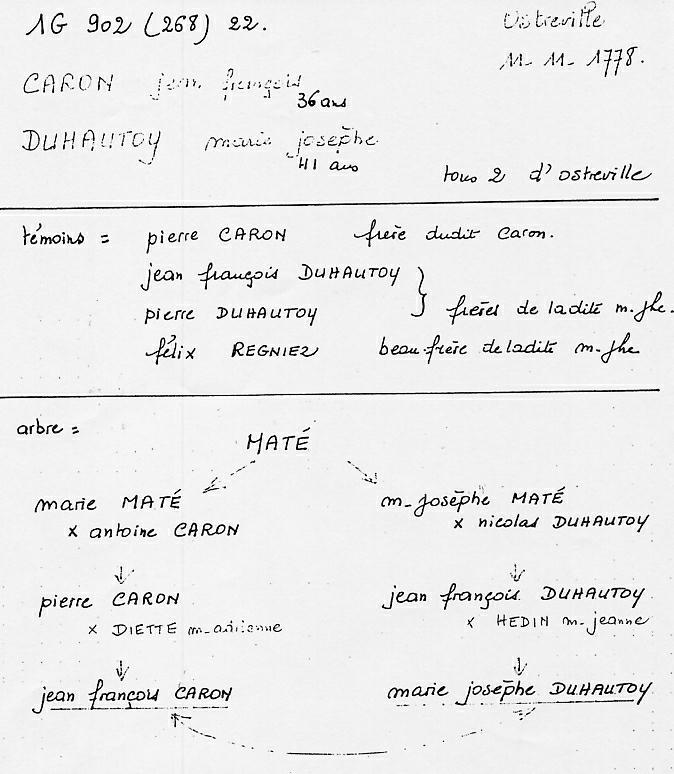 1G 902 (268) 22.
Ostreville
11-11-1778.
CARON jean françois
36 ans
DUHAUTOY marie josephe
41 ans
tous 2 d'Ostreville
témoins = pierre CARON frère dudit Caron.
jean françois DUHAUTOY
pierre DUHAUTOY } frères de ladite m.jhe.
félix REGNIEZ beau-frère de ladite m-jhe
arbre =
MATÉ
marie MATÉ
x antoine CARON
m-josephe MATÉ
x nicolas DUHAUTOY
pierre CARON
x DIETTE m-adrienne
jean françois DUHAUTOY
x HEDIN m-jeanne
jean françois CARON
marie josephe DUHAUTOY